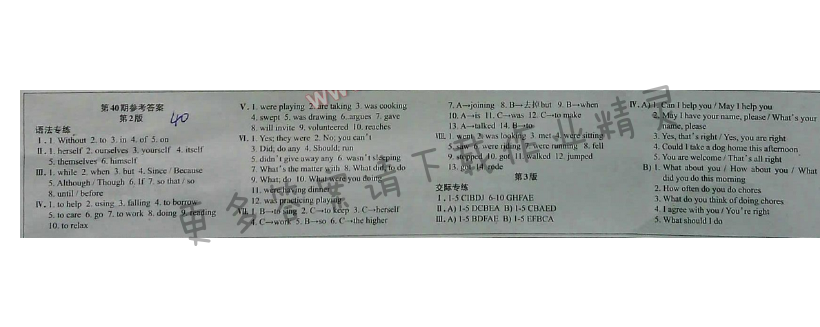 第40期参考答案
第2版
40
语法专练
Ⅰ. 1. Without 2. to 3. in 4. of 5. on
Ⅱ. 1. herself 2. ourselves 3. yourself 4. itself
5. themselves 6. himself
Ⅲ. 1. while 2. when 3. but 4. Since / Because
5. Although / Though 6. If 7. so that / so
8. until / before
Ⅳ. 1. to help 2. using 3. falling 4. to borrow
5. to care 6. go 7. to work 8. doing 9. reading
10. to relax
Ⅴ. 1. were playing 2. are taking 3. was cooking
4. swept 5. was drawing 6. argues 7. gave
8. will invite 9. volunteered 10. reaches
Ⅵ. 1. Yes; they were 2. No; you can't
3. Did; do any 4. Should; run
5. didn't give away any 6. wasn't sleeping
7. What's the matter with 8. What did to do
9. What; do 10. What were you doing
11. was having dinner
12. was practicing playing
Ⅶ. 1. B→to sing 2. C→to keep 3. C→herself
4. C→work 5. B→so 6. C→the higher
7. A→joining 8. B→去掉but 9. B→when
10. A→is 11. C→was 12. C→to make
13. A→talked 14. B→to
Ⅲ. 1. went 2. was looking 3. met 4. were sitting
5. saw 6. were riding 7. were running 8. fell
9. stopped 10. got 11. walked 12. jumped
13. put 14. rode
第3版
交际专练
Ⅰ. 1-5 CIBDJ 6-10 GHFAE
Ⅱ. A) 1-5 DCBEA B) 1-5 CBAED
Ⅲ. A) 1-5 BDFAE B) 1-5 EFBCA
Ⅳ. A) 1. Can I help you / May I help you
2. May I have your name, please / What's your
name, please
3. Yes, that's right / Yes, you are right
4. Could I take a dog home this afternoon
5. You are welcome / That's all right
B) 1. What about you / How about you / What
did you do this morning
2. How often do you do chores
3. What do you think of doing chores
4. I agree with you / You're right
5. What should I do
更多答案请下载作业精灵